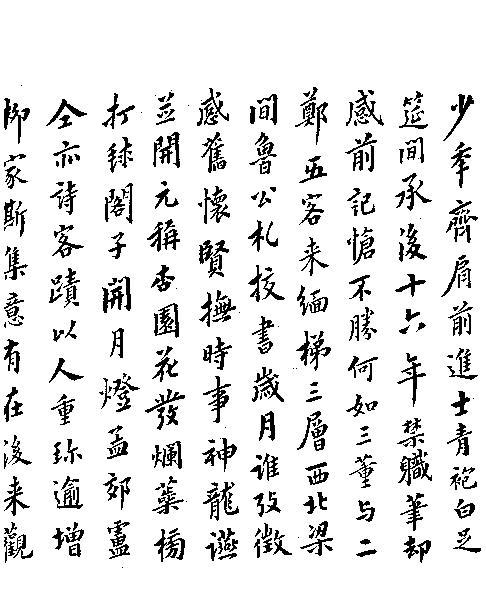 少秊齊肩前進士青袍白足
筵間承後十六年禁職筆却
感前記愴不勝何如三董与二
鄭五客来緬梯三層西北梁
間魯公札校書歲月誰攷徵
感舊懷賢撫時事神龍讌
並開元稱杏園花發爛蘂榜
打毬閣子開月燈孟郊盧
仝亦詩客蹟以人重珎逾增
柳家斯集意有在後来觀